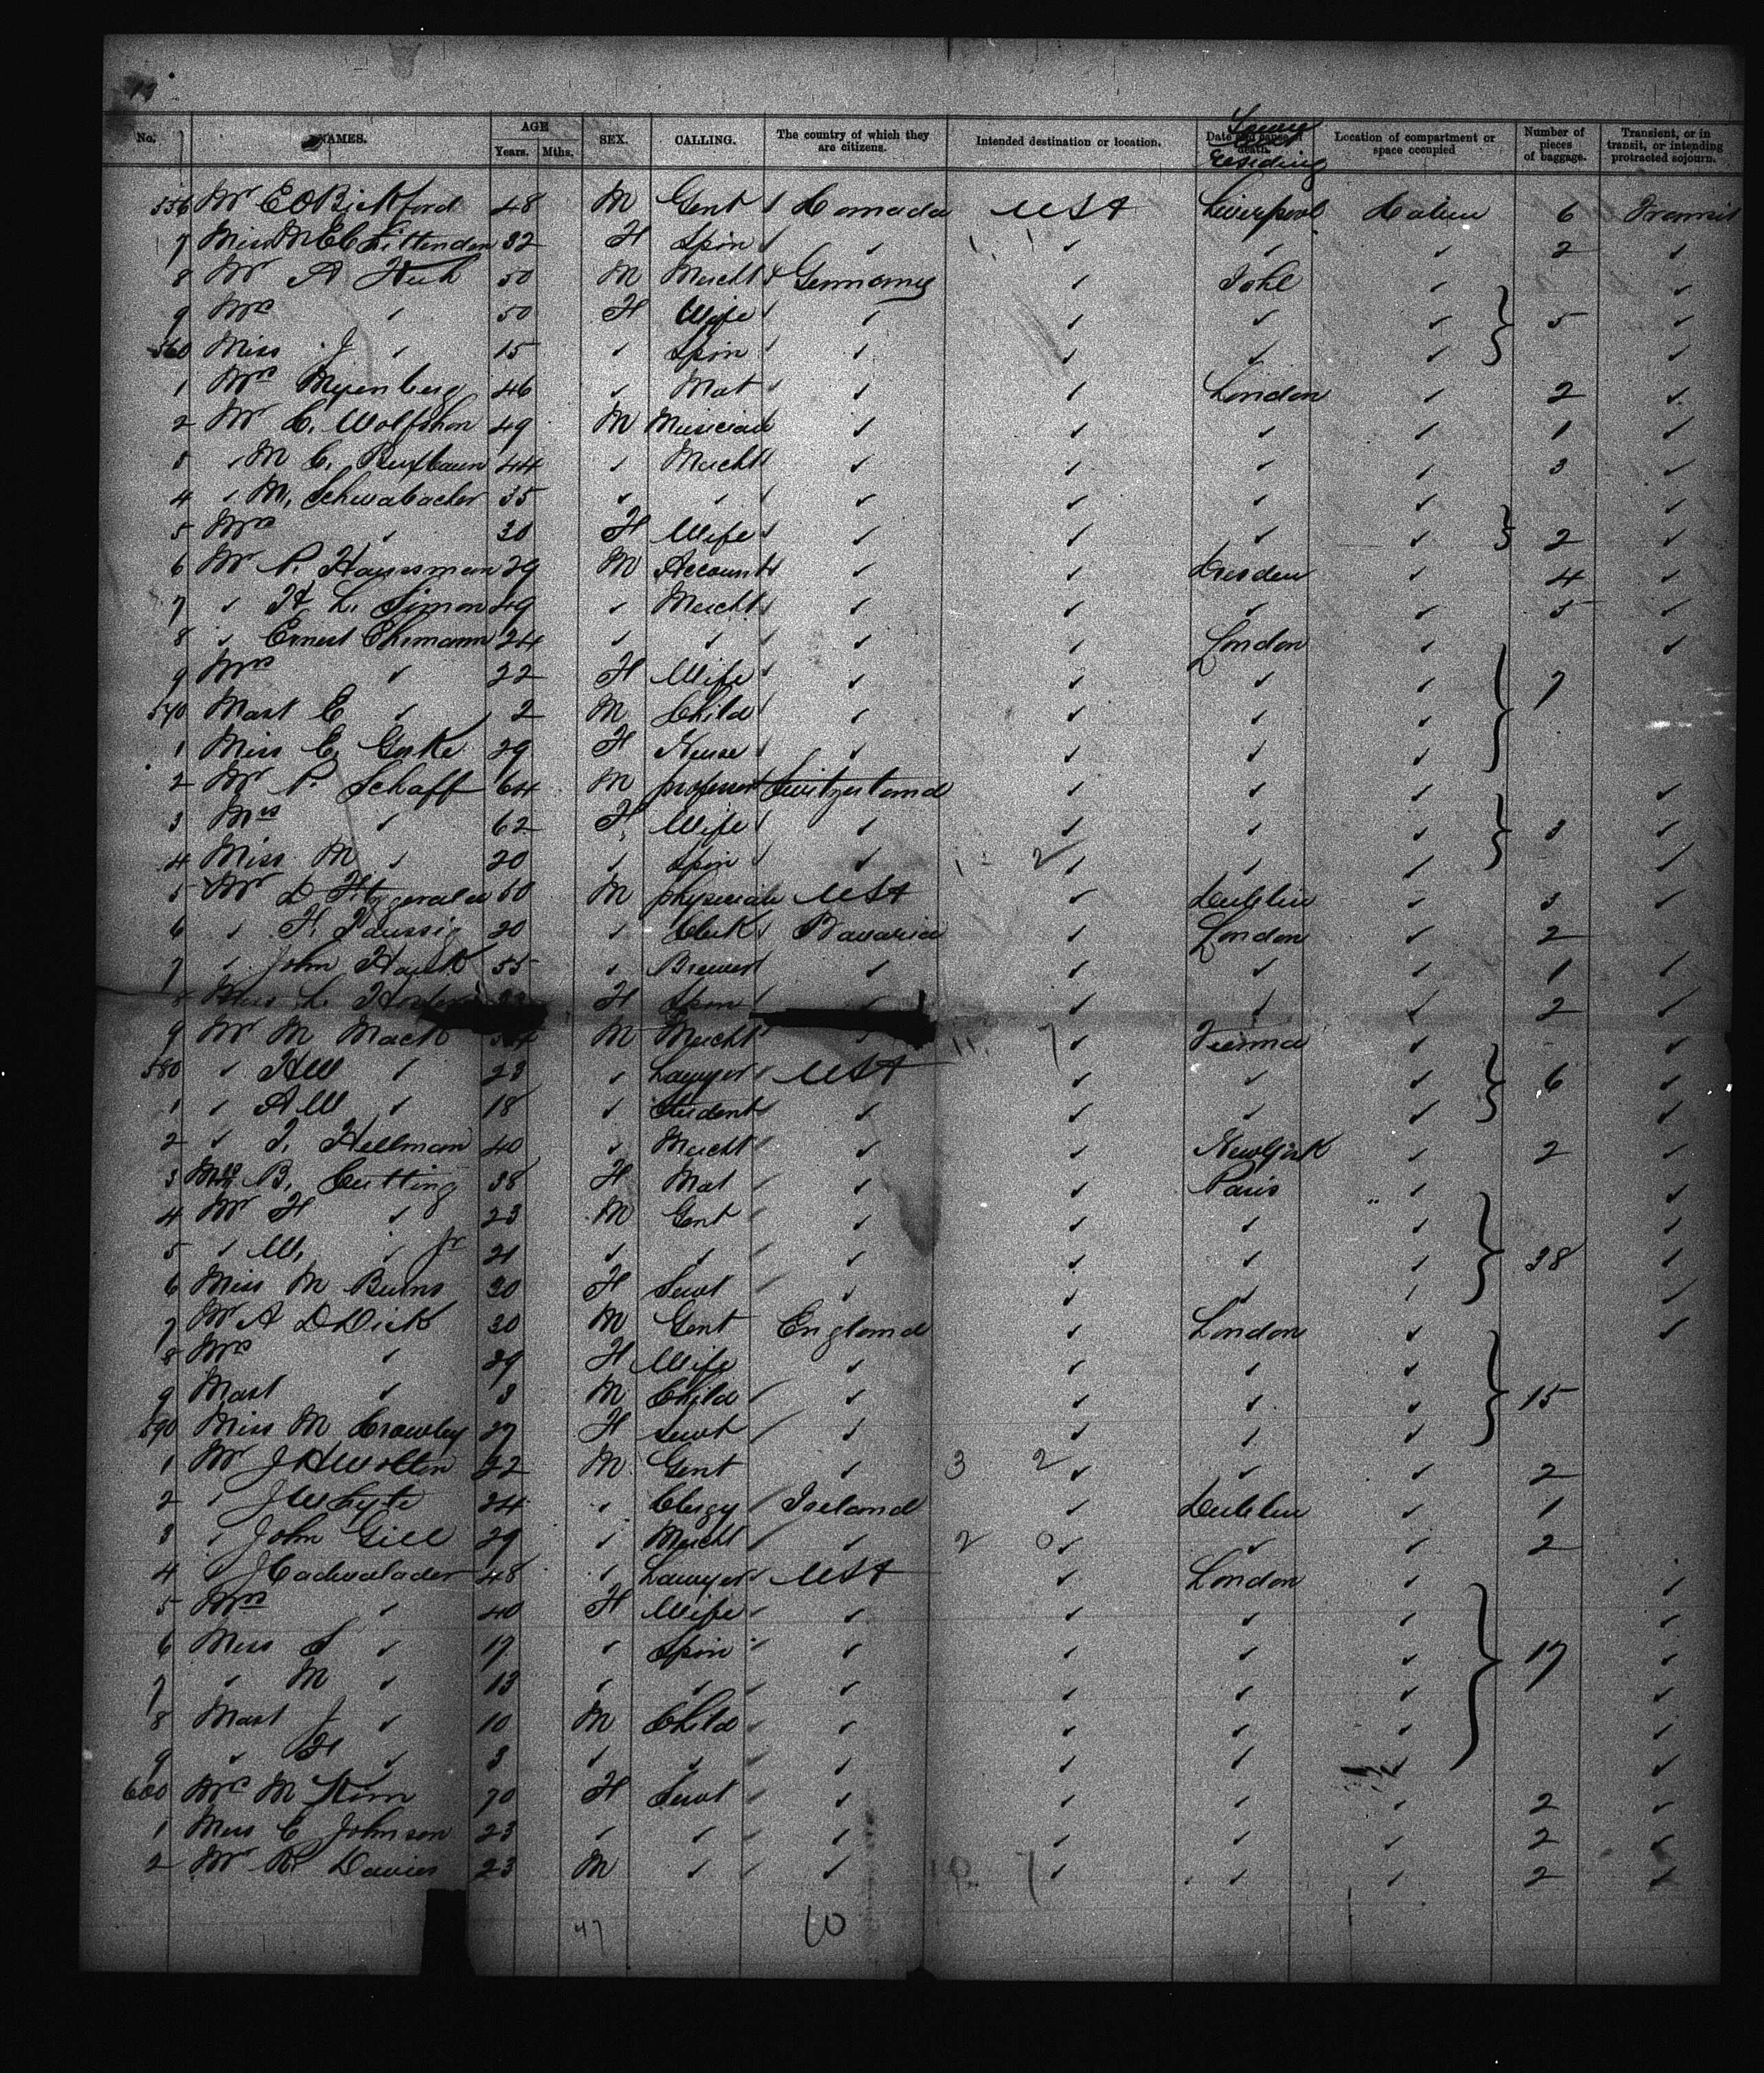 No. NAMES. AGE Years. Mths. SEX. CALLING. The country of which they are citizens. Intended destination or location. Date and cause of death. Residing Location of compartment or space occupied Number of pieces of baggage. Transient, or in transit, or intending protracted sojourn.
556 Mr E O Bickford 48 M Gent Canada USA Liverpool 6 Transit
7 Miss M E Chittenden 32 F Spin ✓ ✓ ✓ ✓ 2 ✓
8 Mr A 50 M Mercht Germany ✓ ✓ ✓
9 Mrs ✓ 50 F Wife ✓ ✓ ✓ ✓ 5 ✓
560 Miss J ✓ 15 ✓ Spin ✓ ✓ ✓ ✓ ✓
1 Mrs Meyenberg 46 ✓ Mat ✓ ✓ London ✓ 2 ✓
2 Mr C. Wolfshon 49 M Musician ✓ ✓ ✓ ✓ 1 ✓
3 ✓ M C. Buxbaum 44 ✓ Mercht ✓ ✓ ✓ ✓ 3 ✓
4 ✓ M. Schwabacher 35 ✓ ✓ ✓ ✓ ✓ ✓ ✓
5 Mrs ✓ 30 F Wife ✓ ✓ ✓ ✓ 2 ✓
6 Mr P. Haussman 29 M Accountt ✓ ✓ Dresden ✓ 4 ✓
7 ✓ H L. Simon 49 ✓ Mercht ✓ ✓ ✓ ✓ 5 ✓
8 ✓ Ernest Ehrmann 24 ✓ ✓ ✓ ✓ London ✓ ✓
9 Mrs ✓ 22 F Wife ✓ ✓ ✓ ✓ 7
570 Mast E ✓ 2 M Child ✓ ✓ ✓ ✓
1 Miss C. Gerke 29 F Nurse ✓ ✓ ✓ ✓
2 Mr P. Schaff 64 M professor Switzerland ✓ ✓ ✓ ✓
3 Mrs ✓ 62 F Wife ✓ ✓ ✓ ✓ 3 ✓
4 Miss M ✓ 20 ✓ Spin ✓ 2 ✓ ✓ ✓ ✓
5 Mr D Fitzgerald 60 M physician USA ✓ Dublin ✓ 3 ✓
6 ✓ F. Taussig 20 ✓ Clerk Bavaria ✓ London ✓ 2
7 ✓ John Hauck 55 ✓ Brewer ✓ ✓ ✓ ✓ 1 ✓
8 Miss L. F Spin ✓ ✓ ✓ 2 ✓
9 Mr M Mack M Mercht ✓ ✓ Vienna ✓ ✓
580 ✓ H W ✓ 23 ✓ Lawyer USA ✓ ✓ ✓ 6 ✓
1 ✓ A W ✓ 18 ✓ Student ✓ ✓ ✓ ✓ ✓
2 ✓ I. Hellman 40 ✓ Mercht ✓ ✓ New York ✓ 2 ✓
3 Mrs B. Cutting 38 F Mat ✓ ✓ Paris ✓ ✓
4 Mr F ✓ 23 M Gent ✓ ✓ ✓ ✓ ✓
5 ✓ W. ✓ Jr 21 ✓ ✓ ✓ ✓ ✓ ✓ 38 ✓
6 Miss M Burns 30 F Servt ✓ ✓ ✓ ✓ ✓
7 Mr A D Dick 30 M Gent England ✓ London ✓ ✓
8 Mrs ✓ 29 F Wife ✓ ✓ ✓ ✓
9 Mast ✓ 3 M Child ✓ ✓ ✓ ✓ 15
590 Miss M Crawley 27 F Servt ✓ ✓ ✓ ✓
1 Mr J H Wolten 22 M Gent ✓ 3 2 ✓ ✓ ✓ 2
2 ✓ J Whyte 24 ✓ Clergy Ireland ✓ Dublin ✓ 1
3 ✓ John Gill 29 ✓ Mercht ✓ 2 0 ✓ ✓ ✓ 2
4 ✓ J Cadwalader 48 ✓ Lawyer USA ✓ London ✓ ✓
5 Mrs ✓ 40 F Wife ✓ ✓ ✓ ✓ ✓
6 Miss S ✓ 17 ✓ Spin ✓ ✓ ✓ ✓ 17 ✓
7 ✓ M ✓ 13 ✓ ✓ ✓ ✓ ✓ ✓ ✓
8 Mast J ✓ 10 M Child ✓ ✓ ✓ ✓ ✓
9 ✓ H ✓ 3 ✓ ✓ ✓ ✓ ✓ ✓ ✓
600 Mrs M Kirn 70 F Servt ✓ ✓ ✓ ✓ 2 ✓
1 Miss C Johnson 23 ✓ ✓ ✓ ✓ ✓ ✓ 2 ✓
2 Mr R. Davies 23 M ✓ ✓ ✓ ✓ ✓ 2 ✓
47 10